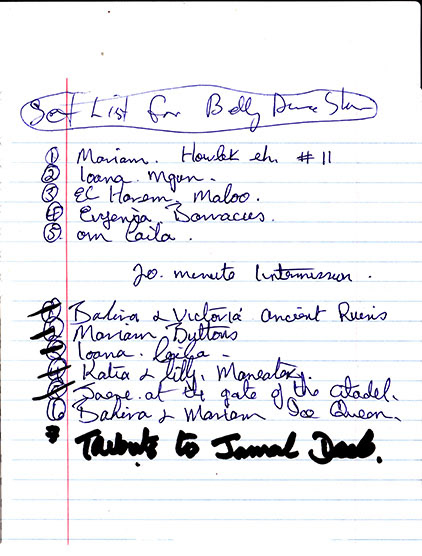 Set List for Belly Dance Show
① Mariam. Howlek eh. #11
② Ioana. Mgun.
③ El Harem, Maloo.
④ Evgenia.
⑤ om Laila.
20. minute Intermission.
① Bahira & Victoria Ancient Ruins
② Mariam
③ Ioana.
④ Katia & Lilly, Maneater.
⑤ at the gate of the citadel.
⑥ Bahira & Mariam Ice Queen.
7 Tribute to Jamal